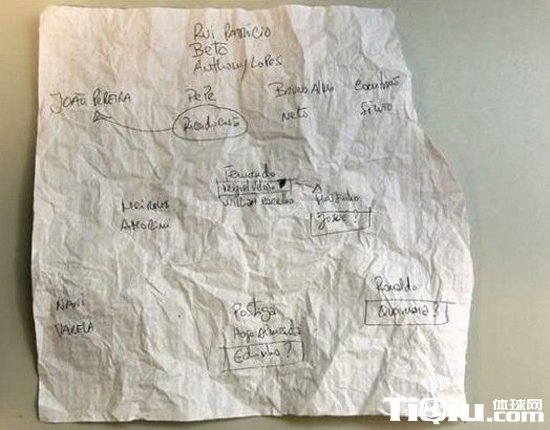 Rui Patrício
Beto
Anthony Lopes
João Pereira
Pepe
Bruno Alves
Coentrão
Ricardo Costa
Neto
Sílvio
Fernando
Miguel Veloso
William Carvalho
Meireles
Amorim
Moutinho
Josué?
Nani
Varela
Postiga
Hugo Almeida
Edinho?
Ronaldo
Quaresma?
TiQiu.com
体球网